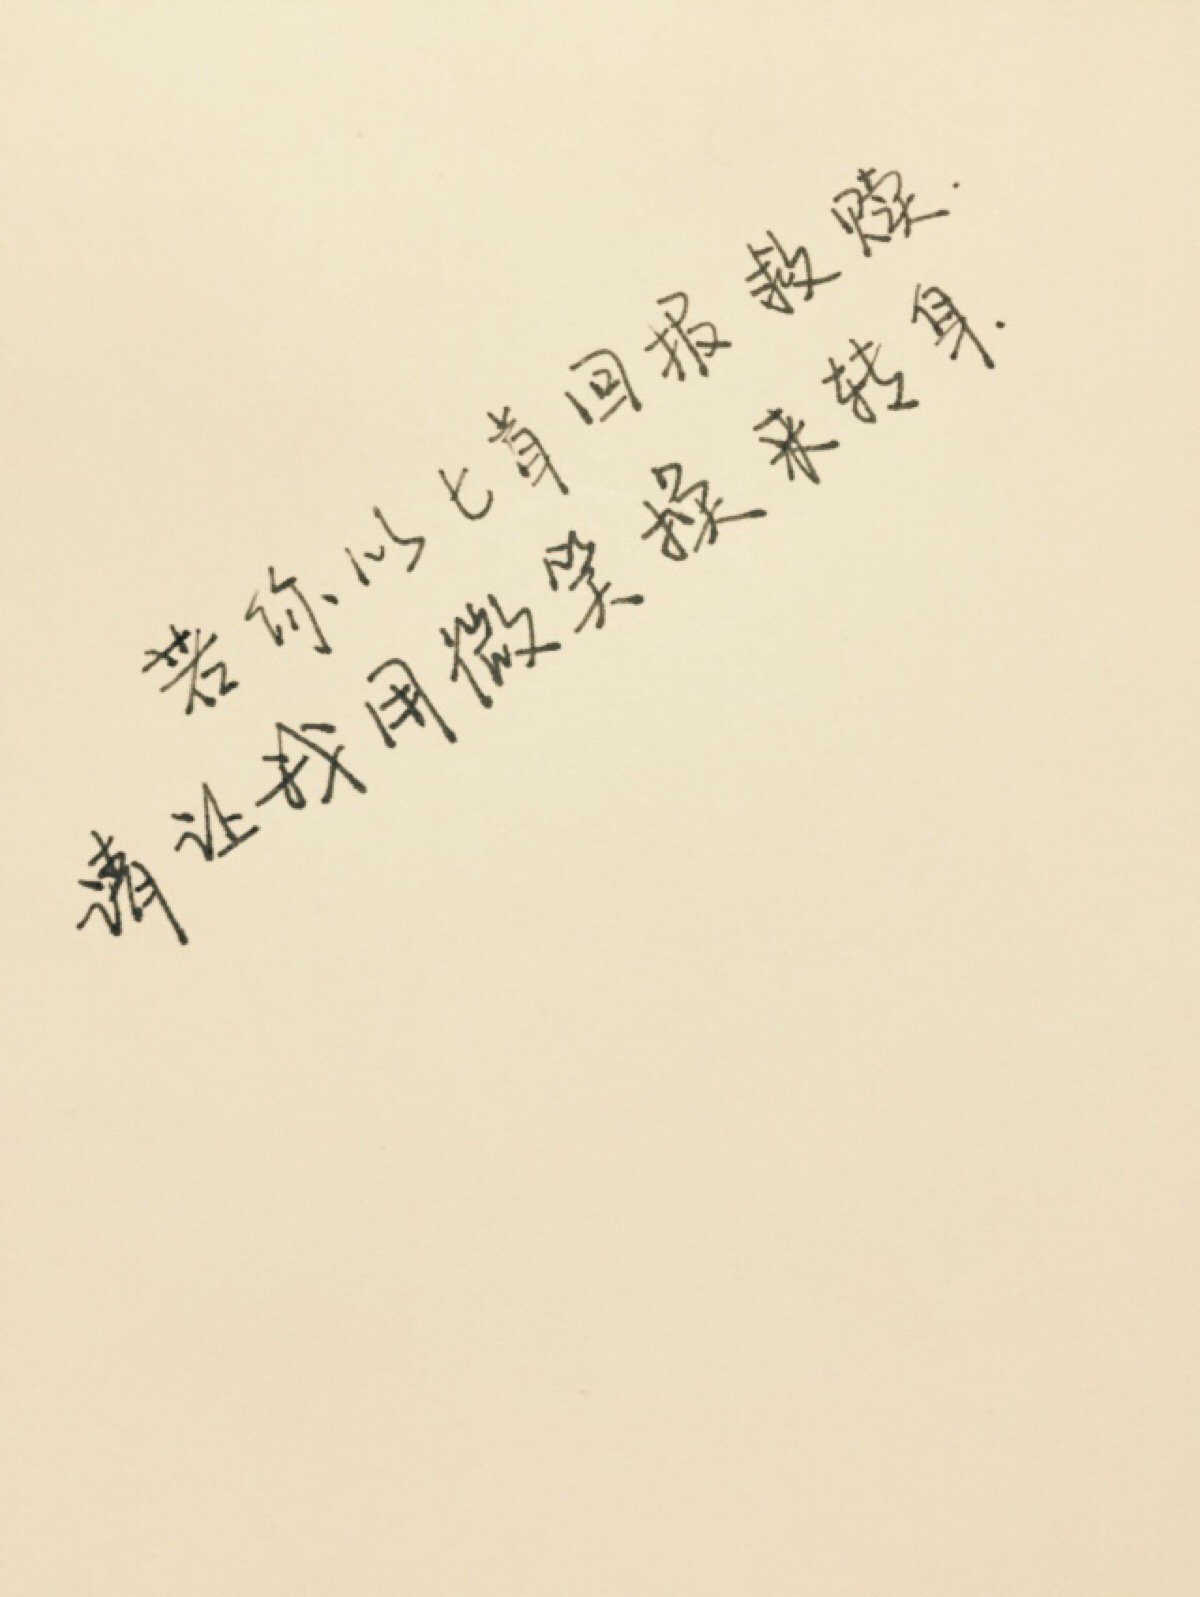 若你以七宵回报救赎.
请让我用微笑换来转身.